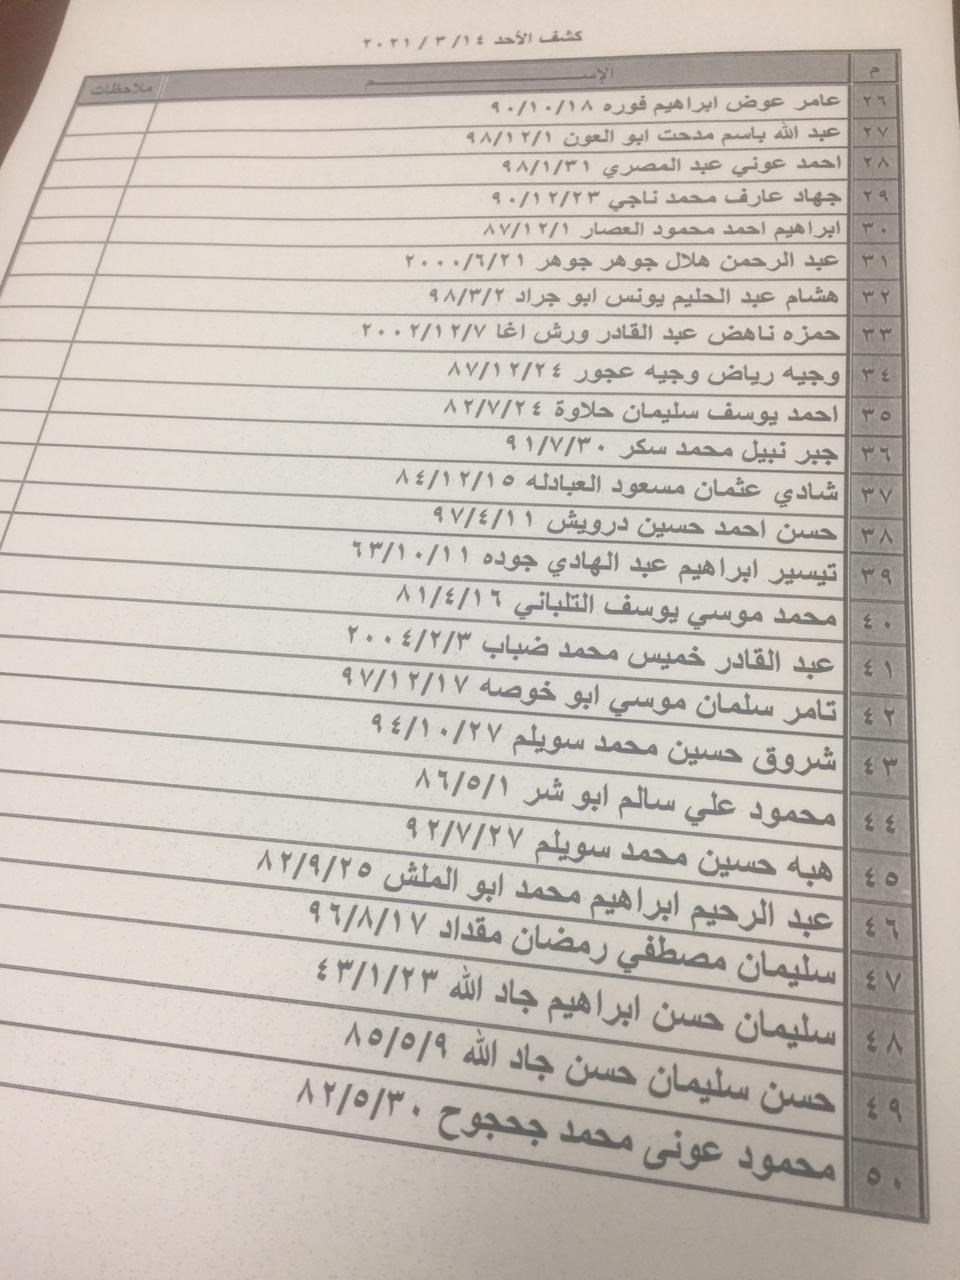 كشف الأحد ١٤/ ٣/ ٢٠٢١
م الإســـــــــم ملاحظات
٢٦ عامر عوض ابراهيم فوره ٩٠/١٠/١٨
٢٧ عبد الله باسم مدحت ابو العون ٩٨/١٢/١
٢٨ احمد عوني عبد المصري ٩٨/١/٣١
٢٩ جهاد عارف محمد ناجي ٩٠/١٢/٢٣
٣٠ ابراهيم احمد محمود العصار ٨٧/١٢/١
٣١ عبد الرحمن هلال جوهر جوهر ٢٠٠٠/٦/٢١
٣٢ هشام عبد الحليم يونس ابو جراد ٩٨/٣/٢
٣٣ حمزه ناهض عبد القادر ورش اغا ٢٠٠٢/١٢/٧
٣٤ وجيه رياض وجيه عجور ٨٧/١٢/٢٤
٣٥ احمد يوسف سليمان حلاوة ٨٢/٧/٢٤
٣٦ جبر نبيل محمد سكر ٩١/٧/٣٠
٣٧ شادي عثمان مسعود العبادله ٨٤/١٢/١٥
٣٨ حسن احمد حسين درويش ٩٧/٤/١١
٣٩ تيسير ابراهيم عبد الهادي جوده ٦٣/١٠/١١
٤٠ محمد موسي يوسف التلباني ٨١/٤/١٦
٤١ عبد القادر خميس محمد ضباب ٢٠٠٤/٢/٣
٤٢ تامر سلمان موسي ابو خوصه ٩٧/١٢/١٧
٤٣ شروق حسين محمد سويلم ٩٤/١٠/٢٧
٤٤ محمود علي سالم ابو شر ٨٦/٥/١
٤٥ هبه حسين محمد سويلم ٩٢/٧/٢٧
٤٦ عبد الرحيم ابراهيم محمد ابو الملش ٨٢/٩/٢٥
٤٧ سليمان مصطفي رمضان مقداد ٩٦/٨/١٧
٤٨ سليمان حسن ابراهيم جاد الله ٤٣/١/٢٣
٤٩ حسن سليمان حسن جاد الله ٨٥/٥/٩
٥٠ محمود عوني محمد جحجوح ٨٢/٥/٣٠